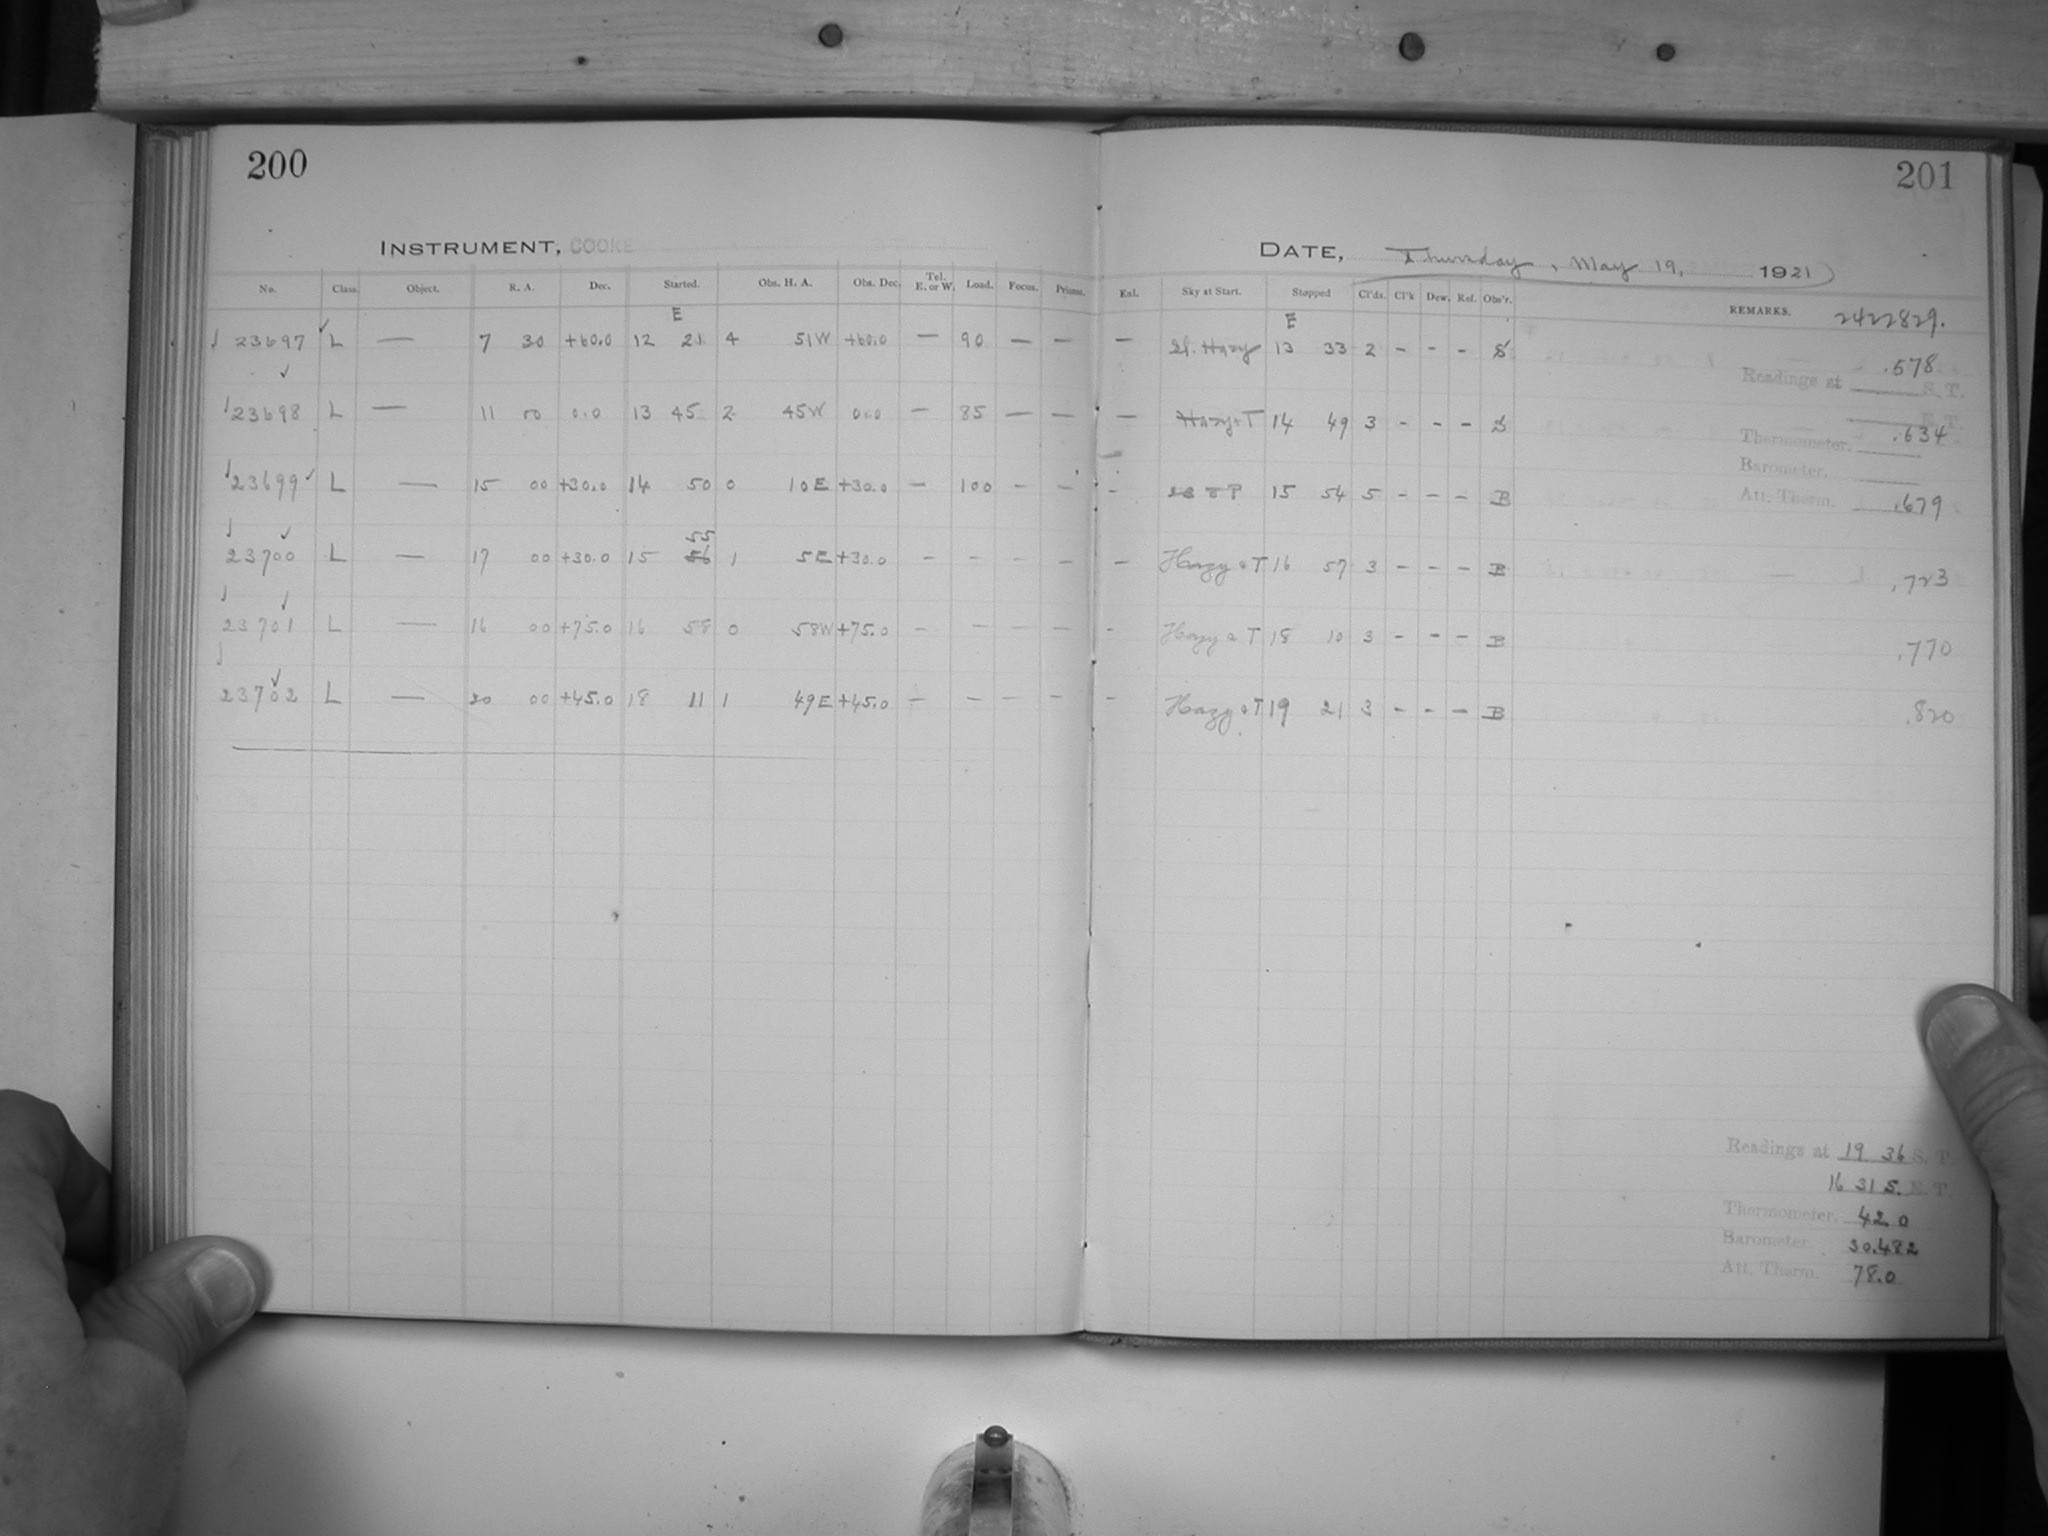 200
INSTRUMENT, COOKE
No. Class. Object. R. A. Dec. Started. Obs. H. A. Obs. Dec. Tel. E. or W. Load. Focus. Prisms.
E
23697 L — 7 30 +60.0 12 21 4 51W +60.0 — 90 — —
23698 L — 11 00 0.0 13 45 2 45W 0.0 — 85 — —
23699 L — 15 00 +30.0 14 50 0 10E +30.0 — 100 - -
55
23700 L — 17 00 +30.0 15 56 1 5E +30.0 - - - -
23701 L — 16 00 +75.0 16 58 0 58W +75.0 - - - -
23702 L — 20 00 +45.0 18 11 1 49E +45.0 - - - -
201
DATE, Thursday, May 19, 1921
Enl. Sky at Start. Stopped Cl'ds. Cl'k Dew. Ref. Obs'r. REMARKS. 2422829.
E
— Sl. Hazy 13 33 2 - - - S .578
Readings at S. T.
E. T.
— Hazy & T 14 49 3 - - - S .634
Thermometer.
Barometer.
- 15 54 5 - - - B .679
Att. Therm.
— Hazy & T 16 57 3 - - - B .723
- Hazy & T 18 10 3 - - - B .770
- Hazy & T 19 21 3 - - - B .820
Readings at 19 36 S. T.
16 31 5. E. T.
Thermometer. 42.0
Barometer. 30.482
Att. Therm. 78.0